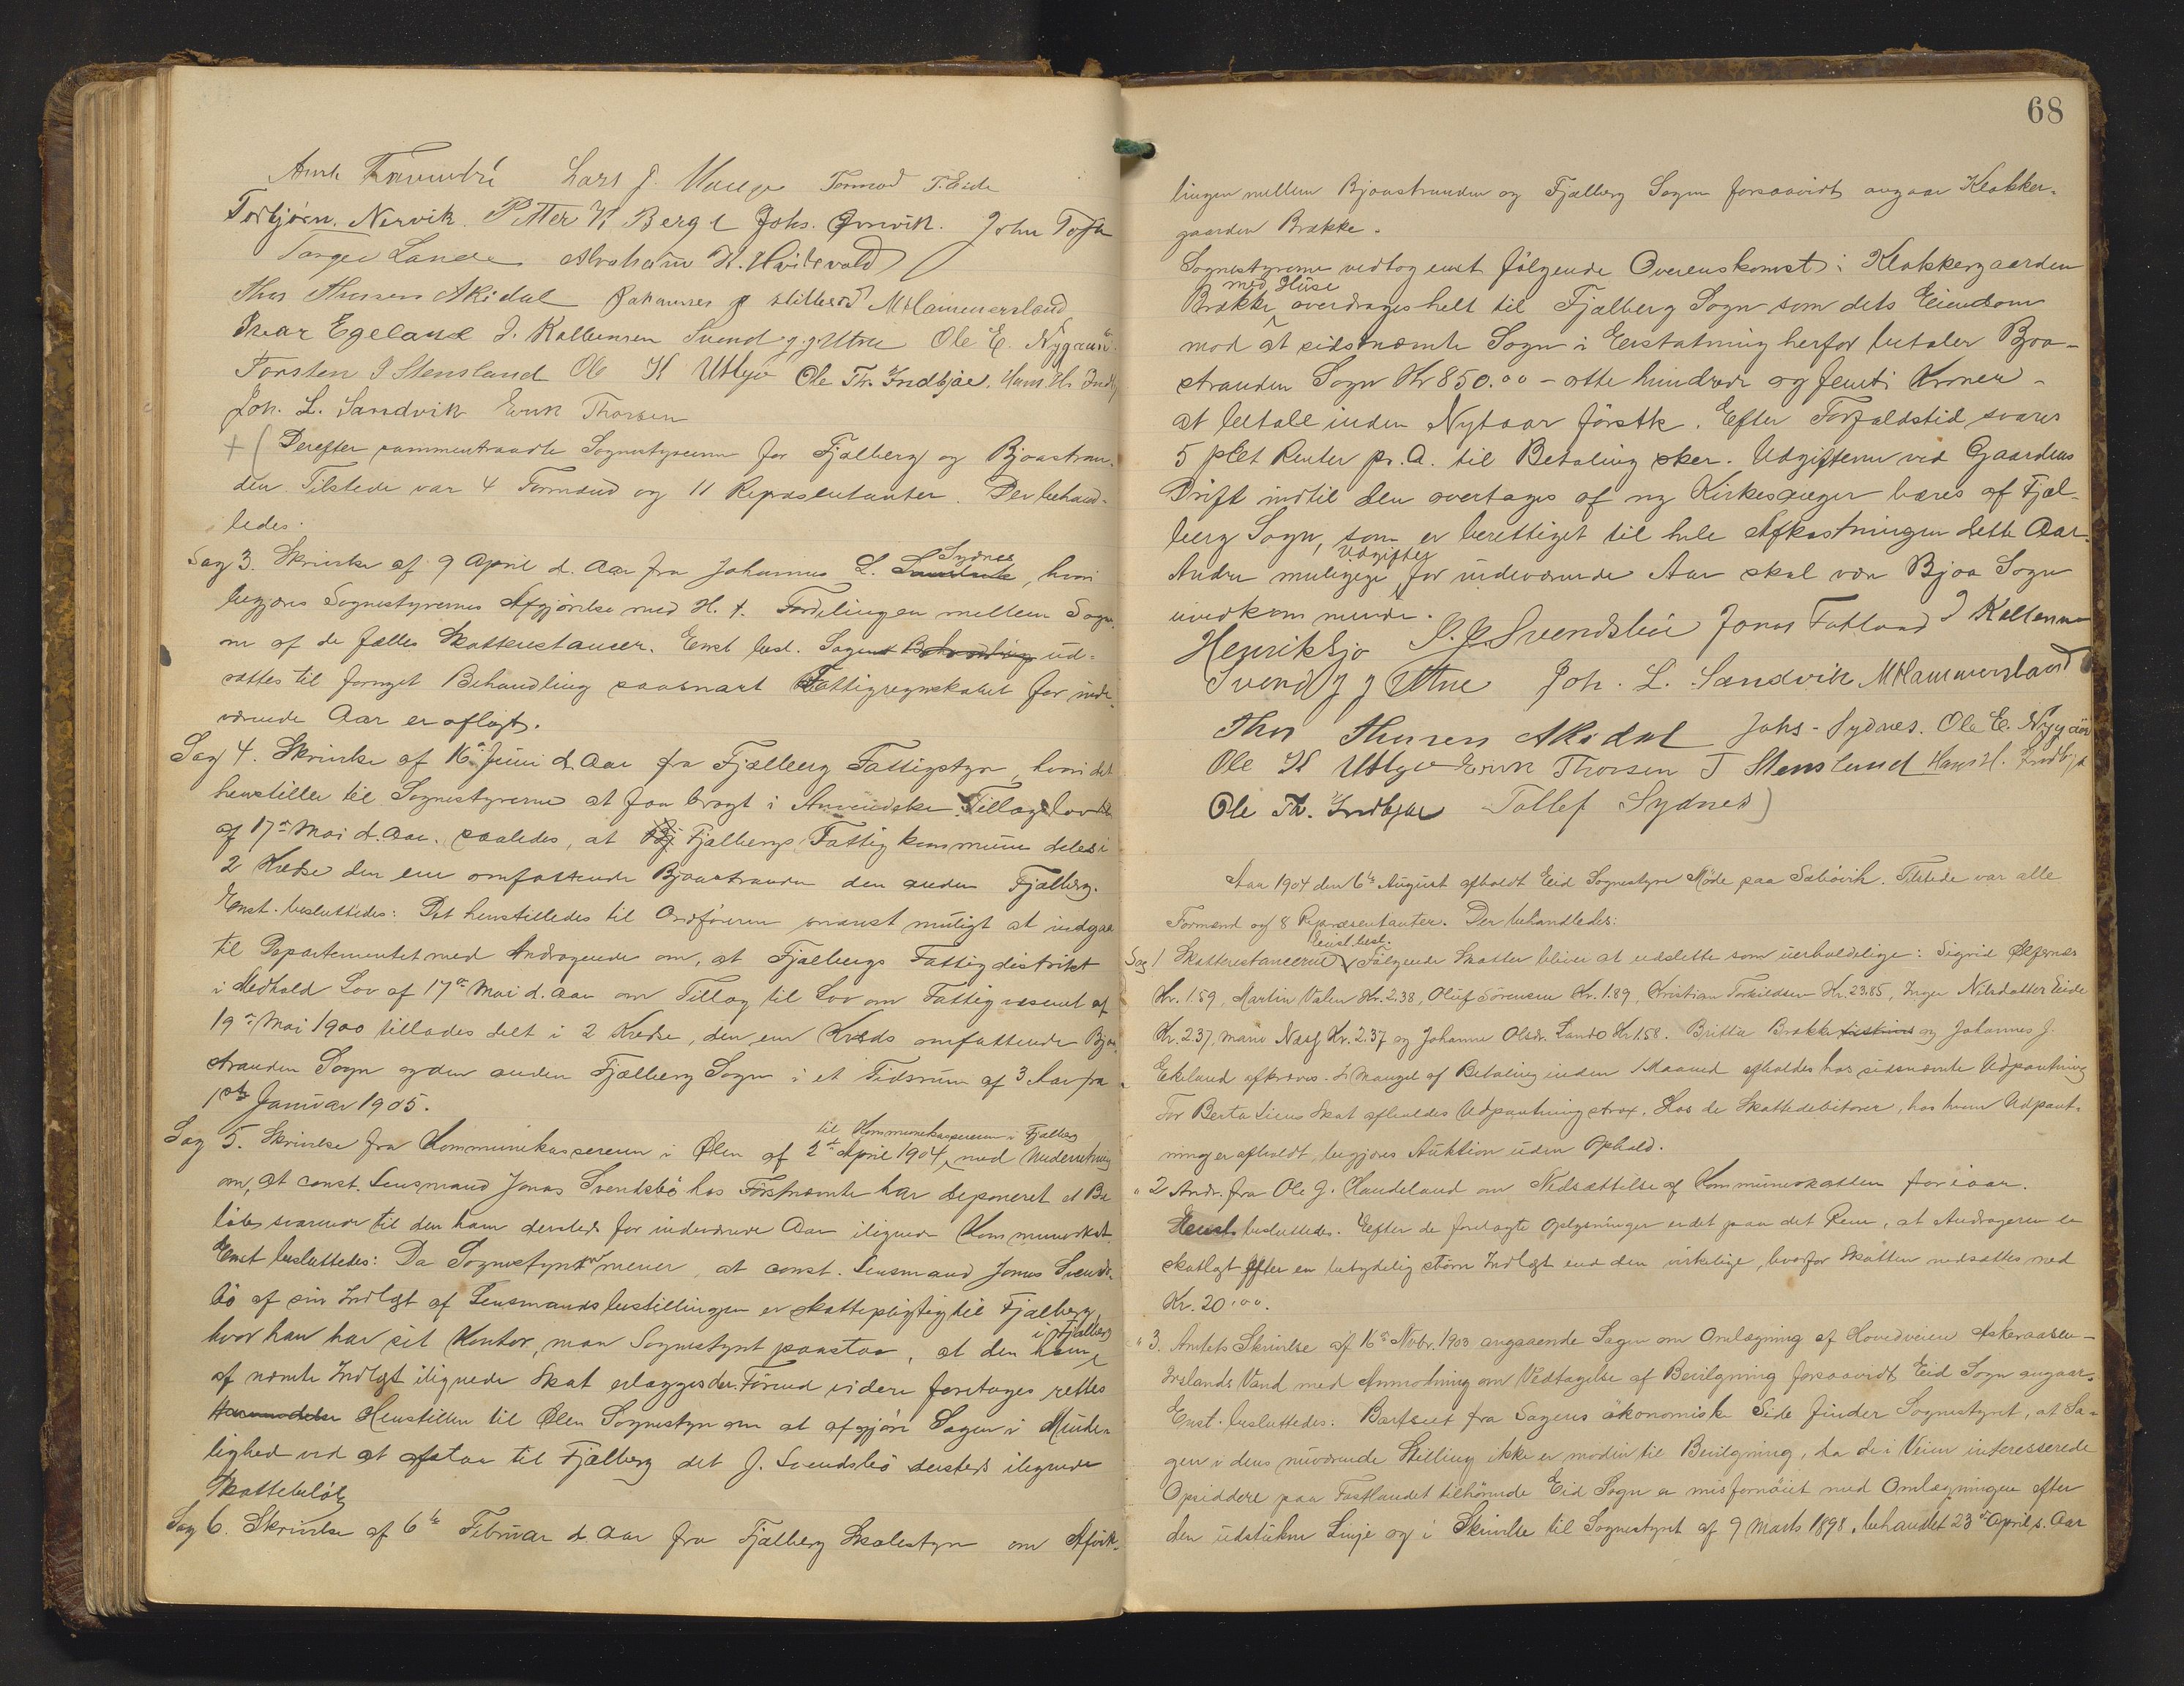 Lars J. Hauge Tormod T. Eide
Torbjörn. Nervik. Petter K Berge Johs. Ørnvik. John Tofte
Torger Lande Abraham H. Hvidevold
Thor Thorsen Akidal Johannes M Hammersland
Ivar Egeland J. Kaltensen Svend J J Utne Ole E. Nygaard.
Torsten J Stensland Ole K Utbjo Ole Th. Indbjoe. Hans H. Indbj
Joh. L. Sandvik Erik Thorsen
+ ( Derefter sammentraadte Sognestyrerne for Fjælberg og Bjoastran-
den. Tilstede var 4 Formænd og 11 Repræsentanter. Der behand-
ledes:
Sag 3. Skrivelse af 9 April d. Aar fra Johannes L. Sydnes, hvori
begjæres Sognestyrernes Afgjörelse med H. t. Fordelingen mellem Sogne-
ne af de fælles Skatterestancer. Enst. besl. Sagen Behandling ud-
sættes til fornyet Behandling saasnart Fattigregnskabet for inde-
værende Aar er aflagt.
Sag 4. Skrivelse af 16de Juni d. Aar fra Fjælberg Fattigstyre, hvori det
henstilles til Sognestyrerne at faa bragt i Anvendelse Tillægslov
af 17de Mai d. Aar. saaledes, at Fjælbergs Fattigkommune deles i
2 Kredse den ene omfattende Bjoastranden den anden Fjælberg.
Enst. besluttedes: Det henstilledes til Ordföreren snarest muligt at indgaa
til Departementet med Andragende om, at Fjælbergs Fattigdistrikt
i Medhold Lov af 17de Mai d. Aar om Tillæg til Lov om Fattigvæsenet af
19de Mai 1900 tillades delt i 2 Kredse, den ene Kreds omfattende Bjoa-
stranden Sogn og den anden Fjælberg Sogn i et Tidsrum af 3 Aar fra
1ste Januar 1905.
Sag 5. Skrivelse fra Kommunekassereren i Ølen af 2de April 1904 til Kommunekassereren i Fjælberg med Underretning
om, at const. Lensmand Jonas Svendsbö hos Förstnævnte har deponeret et Be-
löb svarende til den ham dersteds for indeværende Aar ilignede Kommuneskat.
Enst besluttedes: Da Sognestyret mener, at const. Lensmand Jonas Svends-
bö af sin Indtægt af Lensmandsbestillingen er skattepligtig til Fjælberg,
hvor han har sit Kontor, maa Sognestyret paastaa, at den ham i Fjælberg
af nævnte Indtægt ilignede Skat erlægges der. Förend videre foretages rettes
Henstillen til Ølen Sognestyre om at afgjöre Sagen i Minde-
lighed ved at afstaa til Fjælberg det J. Svendsbö dersteds ilignede
Skattebelöb
Sag 6. Skrivelse af 6te Februar d. Aar fra Fjælberg Skolestyre om Afvik-
68
lingen mellem Bjoastranden og Fjælberg Sogne forsaavidt angaar Klokker-
gaarden Brække.
Sognestyrerne vedtog enst. fölgende Overenskomst: Klokkergaarden
Brække med Huse overdrages helt til Fjælberg Sogn som dets Eiendom
mod at sidstnævnte Sogn i Erstatning herfor betaler Bjoa-
stranden Sogn Kr 850.00 - otte hundrede og femti Kroner -
at betale inden Nytaar förstk. Efter Forfaldstid svares
5 pCt Renter pr. A. til Betaling sker. Udgifterne ved Gaardens
Drift indtil den overtages af ny Kirkesanger bæres af Fjæl-
berg Sogn, som er berettiget til hele Afkastningen dette Aar.
Andre mulige Udgifter for indeværende Aar skal være Bjoa Sogn
uvedkommende.
Henrik Sjo Svendsböe Jonas Fatland J Kaltensen
Svend J J Utne Joh. L. Sandvik M Hammersland
Thor Thorsen Akidal Johs. Sydnes. Ole E. Nygaard
Ole K Utbjo Erik Thorsen T Stensland Hans H. Indbjo
Ole Th. Indbjoe Tollef Sydnes)
Aar 1904 den 6te August afholdt Eid Sognestyre Möde paa Sæbövik. Tilstede var alle
Formænd og 8 Repræsentanter. Der behandledes:
Sag 1 Skatterestancerne. Enst. besl. Fölgende Skatter bliver at udslette som uerholdelige: Sigrid Ølfernes
Kr. 1.59, Martin Valen Kr. 2.38, Oluf Sörensen Kr. 1.89, Kristian Torkildsen Kr. 23.85, Inger Nilsdatter Eide
Kr. 2.37, Marie Næs Kr. 2.37 og Johanne Olsdr. Lande Kr 1.58. Britta Brække og Johannes J.
Ekeland afkræves. I Mangel af Betaling inden 1 Maaned afholdes hos sidsnævnte Udpantning
For Berta Liens Skat afholdes Udpantning strax. Hos de Skattedebitorer, hos hvem Udpant-
ning er afholdt, begjæres Auktion uden Ophold.
" 2 Andr. fra Ole G. Handeland om Nedsættelse af Kommuneskatten for iaar.
Enst. besluttedes. Efter de forelagte Oplysninger er det paa det Rene, at Andrageren er
skatlagt efter en betydelig större Indtægt end den virkelige, hvorfor Skatten nedsættes med
Kr. 20.00.
" 3. Amtets Skrivelse af 16de Novbr. 1903 angaaende Sagen om Omlægning af Hovedveien Askeraasen-
Vand med Anmodning om Vedtagelse af Bevilgning forsaavidt Eid Sogn angaar.
Enst. besluttedes: Bortseet fra Sagens ökonomiske Side finder Sognestyret, at Sa-
gen i dens nuværende Stilling ikke er moden til Bevilgning, da de i Veien interesserede
Opsiddere paa Fastlandet tilhörende Eid Sogn er misfornöiet med Omlægningen efter
den udstukne Linje og i Skrivelse til Sognestyret af 9 Marts 1898, behandlet 23de April s. Aar